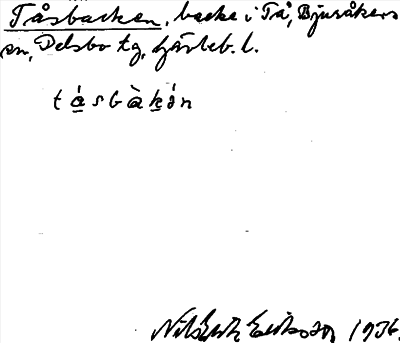 Tåsbacken, backe i Tå, Bjuråkers
sn, Delsbo tg, Gävleb. l.
tásbàkə́n
Nils Erik Eriksson 1936.